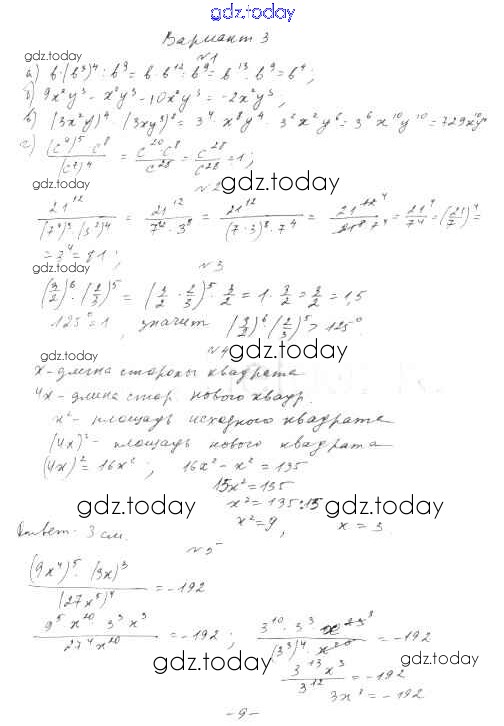 gdz.today
Вариант 3
gdz.today
№1
а) b·(b³)⁴ : b⁹ = b·b¹² : b⁹ = b¹³ : b⁹ = b⁴;
б) 9x²y³ - x²y³ - 10x²y³ = -2x²y³;
в) (3x²y)⁴ · (3xy³)² = 3⁴ · x⁸y⁴ · 3²x²y⁶ = 3⁶x¹⁰y¹⁰ = 729x¹⁰y¹⁰
г) (c⁴)⁵·c⁸/(c⁷)⁴ = c²⁰·c⁸/c²⁸ = c²⁸/c²⁸ = 1;
gdz.today
№2
21¹²/(7⁴)³·(3²)⁴ = 21¹²/7¹²·3⁸ = 21¹²/(7·3)⁸·7⁴ = 21¹²/21⁸·7⁴ = 21⁴/7⁴ = (21/7)⁴ =
= 3⁴ = 81;
gdz.today
№3
(3/2)⁶·(2/3)⁵ = (3/2·2/3)⁵·3/2 = 1·3/2 = 3/2 = 1,5
125⁰ = 1, значит (3/2)⁶·(2/3)⁵ > 125⁰
gdz.today
№4
x - длина стороны квадрата
4x - длина стор. нового квадр.
x² - площадь исходного квадрата
(4x)² - площадь нового квадрата
(4x)² = 16x²; 16x² - x² = 135
15x² = 135
gdz.today gdz.today
x² = 135:15
x² = 9, x = 3
Ответ: 3 см.
№5
(9x⁴)⁵·(3x)³/(27x⁵)⁴ = -192
gdz.today gdz.today
9⁵x²⁰·3³x³/27⁴x²⁰ = -192; 3¹⁰·3³·x²³/(3³)⁴·x²⁰ = -192
gdz.today gdz.today
3¹³x³/3¹² = -192
3x³ = -192
- 9 -